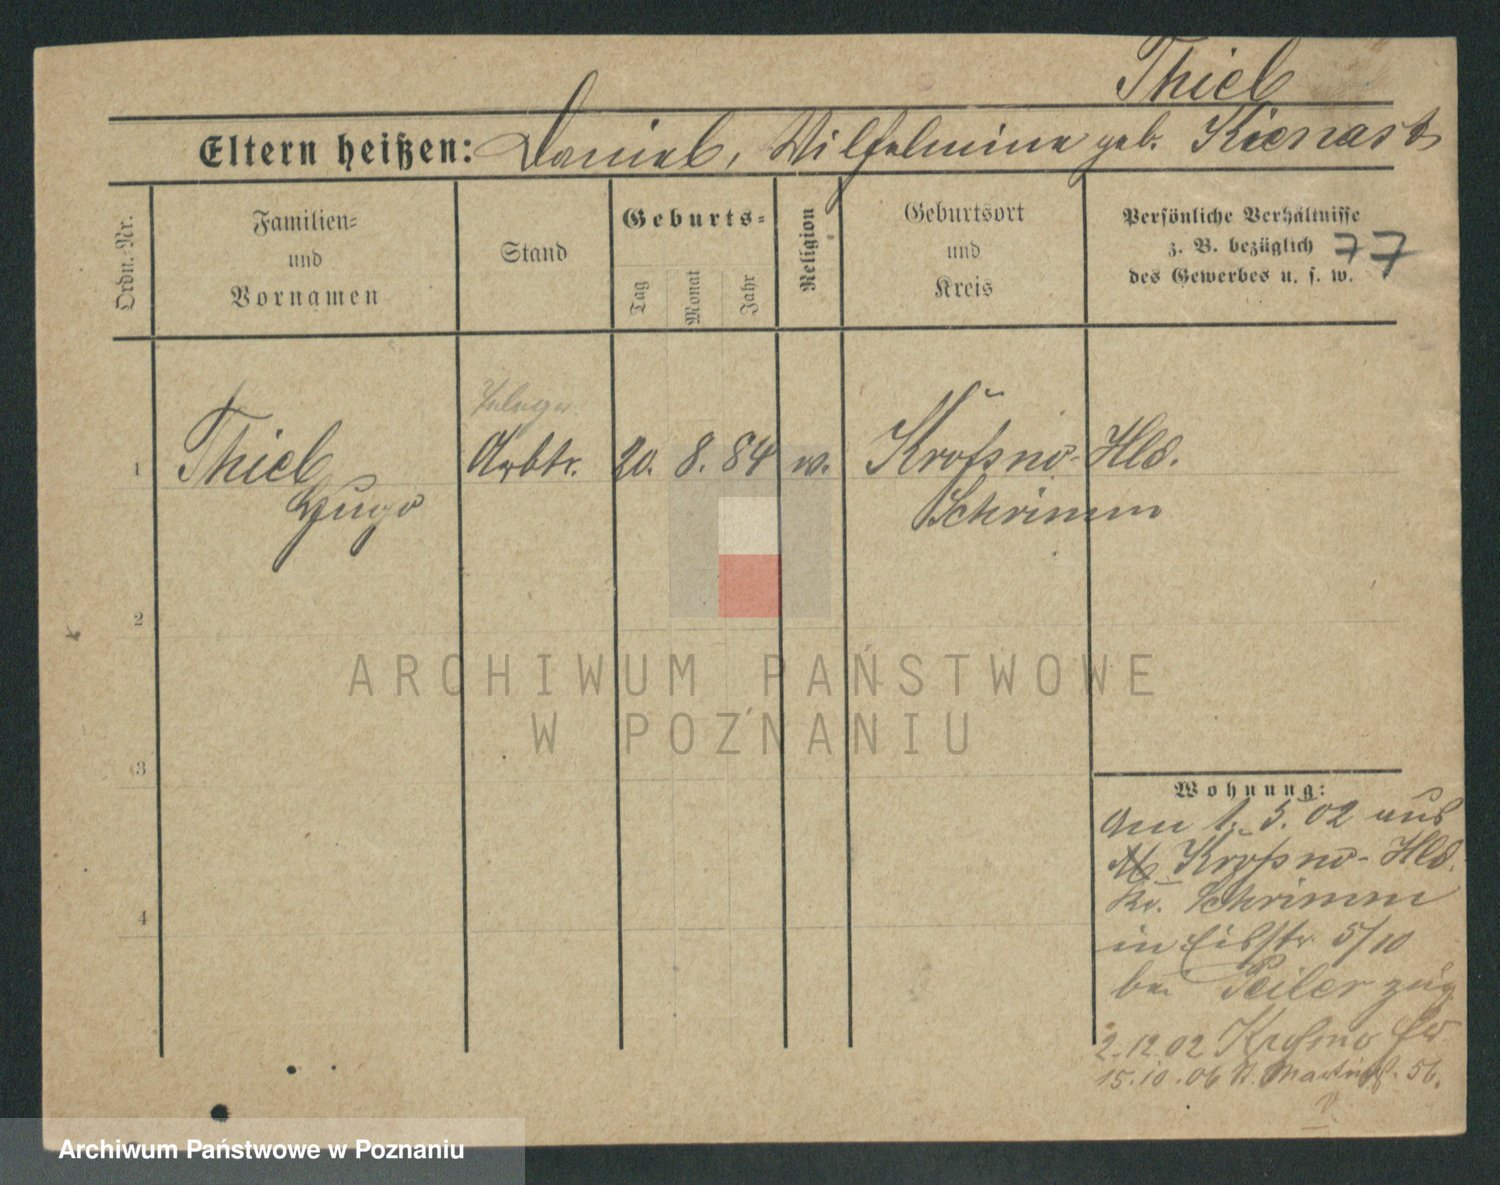 Thiel
Eltern heißen: Daniel, Wilhelmine geb. Kienast
Ordn.-Nr.
Familien-
und
Vornamen
Stand
Geburts-
Tag
Monat
Jahr
Religion
Geburtsort
und
Kreis
Persönliche Verhältnisse
z. B. bezüglich
des Gewerbes u. s. w.
77
1
Thiel
Hugo
Arbtr.
20. 8. 84
Krosno-Hld.
Schrimm
2
3
4
ARCHIWUM PAŃSTWOWE
W POZNANIU
Wohnung:
Am 1. 5. 02 aus
Krosno-Hld.
Kr. Schrimm
in 5/10
bei Peiler zug.
2.12.02 Krosno
15.10.06 56.
Archiwum Państwowe w Poznaniu